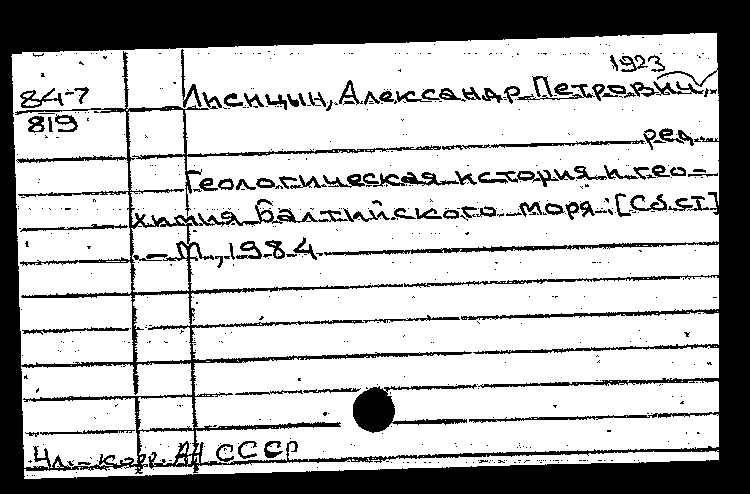 1923
84-7 Лисицын, Александр Петрович,
819
ред.
Геологическая история и гео-
химия Балтийского моря: [Сб. ст]
. - М, 1984
Чл. - корр. АН СССР